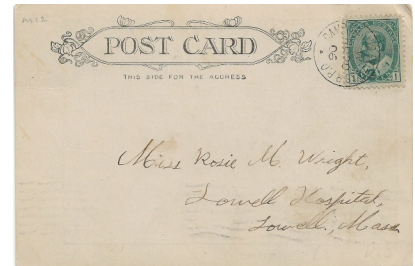 POST CARD
THIS SIDE FOR THE ADDRESS
Miss Rosie M. Wright,
Lowell Hospital,
Lowell, Mass